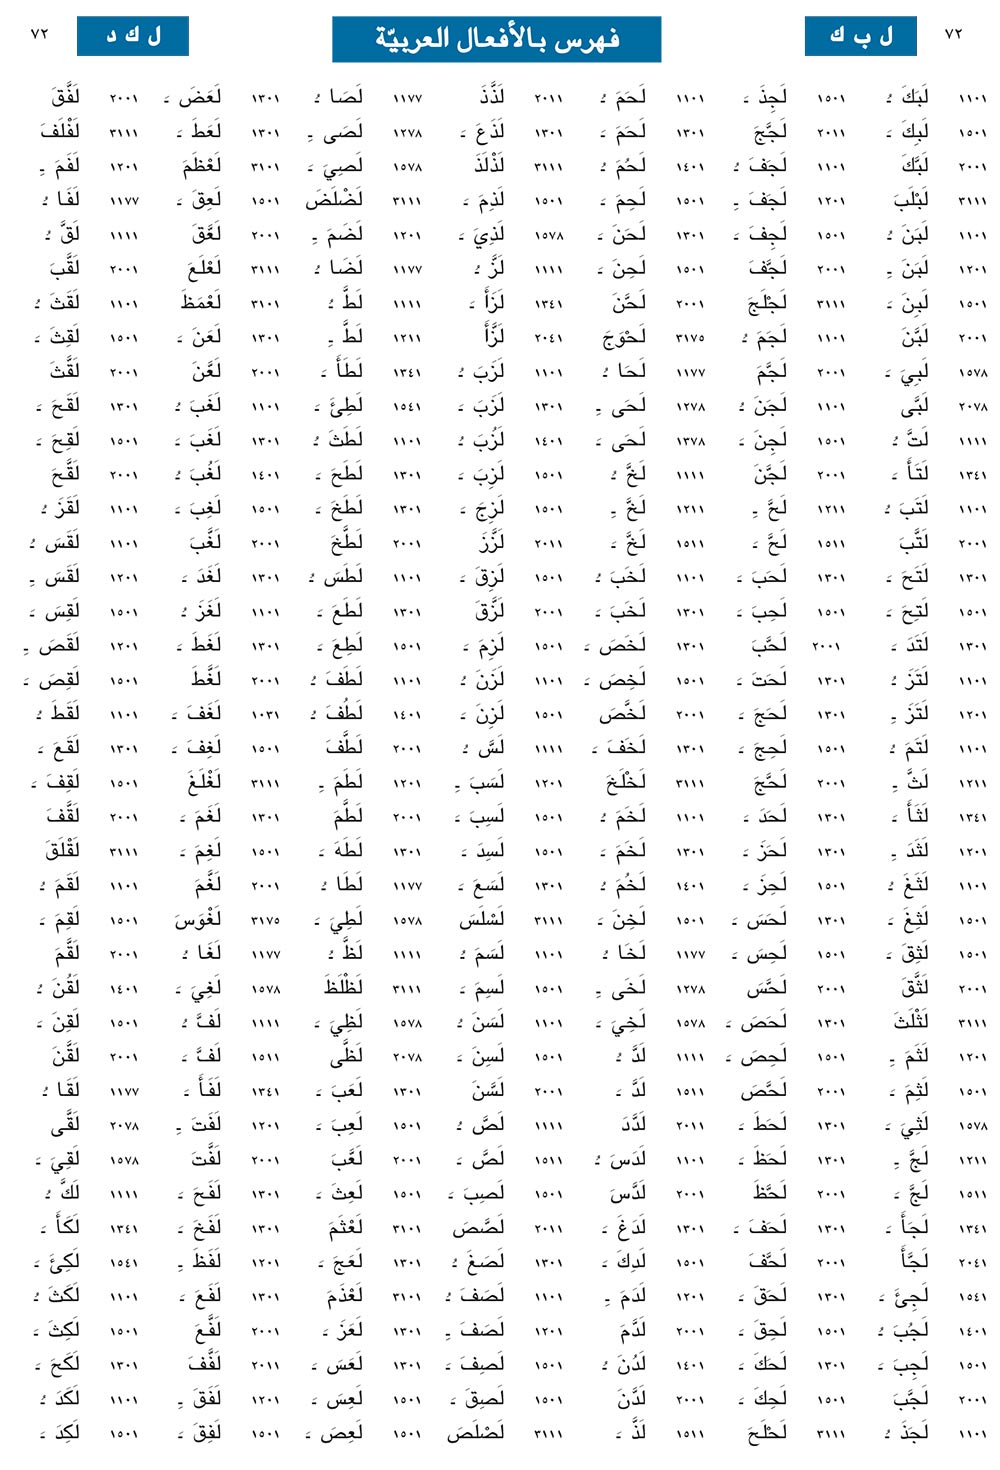 ٧٢ ل ب ك فهرس بالأفعال العربيّة ل ك د ٧٢
١١٠١ لَبَكَ ـُ ١٥٠١ لَجِذَ ـَ ١١٠١ لَحَمَ ـُ ٢٠١١ لَذَّذَ ١١٧٧ لَصَا ـُ ١٣٠١ لَعَضَ ـَ ٢٠٠١ لَفَّقَ
١٥٠١ لَبِكَ ـَ ٢٠١١ لَجَّجَ ١٣٠١ لَحَمَ ـَ ١٣٠١ لَذَعَ ـَ ١٢٧٨ لَصَى ـِ ١٣٠١ لَعَطَ ـَ ٣١١١ لَفْلَفَ
٢٠٠١ لَبَّكَ ١١٠١ لَجَفَ ـُ ١٤٠١ لَحُمَ ـُ ٣١١١ لَذْلَذَ ١٥٧٨ لَصِيَ ـَ ٣١٠١ لَعْظَمَ ١٢٠١ لَفَمَ ـِ
٣١١١ لَبْلَبَ ١٢٠١ لَجَفَ ـِ ١٥٠١ لَحِمَ ـَ ١٥٠١ لَذِمَ ـَ ٣١١١ لَضْلَضَ ١٥٠١ لَعِقَ ـَ ١١٧٧ لَفَا ـُ
١١٠١ لَبَنَ ـُ ١٥٠١ لَجِفَ ـَ ١٣٠١ لَحَنَ ـَ ١٥٧٨ لَذِيَ ـَ ١٢٠١ لَضَمَ ـِ ٢٠٠١ لَعَّقَ ١١١١ لَقَّ ـُ
١٢٠١ لَبَنَ ـِ ٢٠٠١ لَجَّفَ ١٥٠١ لَحِنَ ـَ ١١١١ لَزَّ ـُ ١١٧٧ لَضَا ـُ ٣١١١ لَعْلَعَ ٢٠٠١ لَقَّبَ
١٥٠١ لَبِنَ ـَ ٣١١١ لَجْلَجَ ٢٠٠١ لَحَّنَ ١٣٤١ لَزَأَ ـَ ١١١١ لَطَّ ـُ ٣١٠١ لَعْمَظَ ١١٠١ لَقَثَ ـُ
٢٠٠١ لَبَّنَ ١١٠١ لَجَمَ ـُ ٣١٧٥ لَحْوَجَ ٢٠٤١ لَزَّأَ ١٢١١ لَطَّ ـِ ١٣٠١ لَعَنَ ـَ ١٥٠١ لَقِثَ ـَ
١٥٧٨ لَبِيَ ـَ ٢٠٠١ لَجَّمَ ١١٧٧ لَحَا ـُ ١١٠١ لَزَبَ ـُ ١٣٤١ لَطَأَ ـَ ٢٠٠١ لَعَّنَ ٢٠٠١ لَقَّثَ
٢٠٧٨ لَبَّى ١١٠١ لَجَنَ ـُ ١٢٧٨ لَحَى ـِ ١٣٠١ لَزَبَ ـَ ١٥٤١ لَطِئَ ـَ ١١٠١ لَغَبَ ـُ ١٣٠١ لَقَحَ ـَ
١١١١ لَتَّ ـُ ١٥٠١ لَجِنَ ـَ ١٣٧٨ لَحَى ـَ ١٤٠١ لَزُبَ ـُ ١١٠١ لَطَثَ ـُ ١٣٠١ لَغَبَ ـَ ١٥٠١ لَقِحَ ـَ
١٣٤١ لَتَأَ ـَ ٢٠٠١ لَجَّنَ ١١١١ لَخَّ ـُ ١٥٠١ لَزِبَ ـَ ١٣٠١ لَطَحَ ـَ ١٤٠١ لَغُبَ ـُ ٢٠٠١ لَقَّحَ
١١٠١ لَتَبَ ـُ ١٢١١ لَحَّ ـِ ١٢١١ لَخَّ ـِ ١٥٠١ لَزِجَ ـَ ١٣٠١ لَطَخَ ـَ ١٥٠١ لَغِبَ ـَ ١١٠١ لَقَزَ ـُ
٢٠٠١ لَتَّبَ ١٥١١ لَحَّ ـَ ١٥١١ لَخَّ ـَ ٢٠١١ لَزَّزَ ٢٠٠١ لَطَّخَ ٢٠٠١ لَغَّبَ ١١٠١ لَقَسَ ـُ
١٣٠١ لَتَحَ ـَ ١٣٠١ لَحَبَ ـَ ١١٠١ لَخَبَ ـُ ١٥٠١ لَزِقَ ـَ ١١٠١ لَطَسَ ـُ ١٣٠١ لَغَدَ ـَ ١٢٠١ لَقَسَ ـِ
١٥٠١ لَتِحَ ـَ ١٥٠١ لَحِبَ ـَ ١٣٠١ لَخَبَ ـَ ٢٠٠١ لَزَّقَ ١٣٠١ لَطَعَ ـَ ١١٠١ لَغَزَ ـُ ١٥٠١ لَقِسَ ـَ
١٣٠١ لَتَدَ ـَ ٢٠٠١ لَحَّبَ ١٣٠١ لَخَصَ ـَ ١٥٠١ لَزِمَ ـَ ١٥٠١ لَطِعَ ـَ ١٣٠١ لَغَطَ ـَ ١٢٠١ لَقَصَ ـِ
١١٠١ لَتَزَ ـُ ١٣٠١ لَحَتَ ـَ ١٥٠١ لَخِصَ ـَ ١١٠١ لَزَنَ ـُ ١١٠١ لَطَفَ ـُ ٢٠٠١ لَغَّطَ ١٥٠١ لَقِصَ ـَ
١٢٠١ لَتَزَ ـِ ١٣٠١ لَحَجَ ـَ ٢٠٠١ لَخَّصَ ١٥٠١ لَزِنَ ـَ ١٤٠١ لَطُفَ ـُ ١٠٣١ لَغَفَ ـَ ١١٠١ لَقَطَ ـُ
١١٠١ لَتَمَ ـُ ١٥٠١ لَحِجَ ـَ ١٣٠١ لَخَفَ ـَ ١١١١ لَسَّ ـُ ٢٠٠١ لَطَّفَ ١٥٠١ لَغِفَ ـَ ١٣٠١ لَقَعَ ـَ
١٢١١ لَثَّ ـِ ٢٠٠١ لَحَّجَ ٣١١١ لَخْلَخَ ١٢٠١ لَسَبَ ـِ ١٢٠١ لَطَمَ ـِ ٣١١١ لَغْلَغَ ١٥٠١ لَقِفَ ـَ
١٣٤١ لَثَأَ ـَ ١٣٠١ لَحَدَ ـَ ١١٠١ لَخَمَ ـُ ١٥٠١ لَسِبَ ـَ ٢٠٠١ لَطَّمَ ١٣٠١ لَغَمَ ـَ ٢٠٠١ لَقَّفَ
١٢٠١ لَثَدَ ـِ ١٣٠١ لَحَزَ ـَ ١٣٠١ لَخَمَ ـَ ١٥٠١ لَسِدَ ـَ ١٣٠١ لَطَهَ ـَ ١٥٠١ لَغِمَ ـَ ٣١١١ لَقْلَقَ
١١٠١ لَثَغَ ـُ ١٥٠١ لَحِزَ ـَ ١٤٠١ لَخُمَ ـُ ١٣٠١ لَسَعَ ـَ ١١٧٧ لَطَا ـُ ٢٠٠١ لَغَّمَ ١١٠١ لَقَمَ ـُ
١٥٠١ لَثِغَ ـَ ١٣٠١ لَحَسَ ـَ ١٥٠١ لَخِنَ ـَ ٣١١١ لَسْلَسَ ١٥٧٨ لَطِيَ ـَ ٣١٧٥ لَغْوَسَ ١٥٠١ لَقِمَ ـَ
١٥٠١ لَثِقَ ـَ ١٥٠١ لَحِسَ ـَ ١١٧٧ لَخَا ـُ ١١٠١ لَسَمَ ـُ ١١١١ لَظَّ ـُ ١١٧٧ لَغَا ـُ ٢٠٠١ لَقَّمَ
٢٠٠١ لَثَّقَ ٢٠٠١ لَحَّسَ ١٢٧٨ لَخَى ـِ ١٥٠١ لَسِمَ ـَ ٣١١١ لَظْلَظَ ١٥٧٨ لَغِيَ ـَ ١٤٠١ لَقُنَ ـُ
٣١١١ لَثْلَثَ ١٣٠١ لَحَصَ ـَ ١٥٧٨ لَخِيَ ـَ ١١٠١ لَسَنَ ـُ ١٥٧٨ لَظِيَ ـَ ١١١١ لَفَّ ـُ ١٥٠١ لَقِنَ ـَ
١٢٠١ لَثَمَ ـِ ١٥٠١ لَحِصَ ـَ ١١١١ لَدَّ ـُ ١٥٠١ لَسِنَ ـَ ٢٠٧٨ لَظَّى ١٥١١ لَفَّ ـَ ٢٠٠١ لَقَّنَ
١٥٠١ لَثِمَ ـَ ٢٠٠١ لَحَّصَ ١٥١١ لَدَّ ـَ ٢٠٠١ لَسَّنَ ١٣٠١ لَعَبَ ـَ ١٣٤١ لَفَأَ ـَ ١١٧٧ لَقَا ـُ
١٥٧٨ لَثِيَ ـَ ١٣٠١ لَحَطَ ـَ ٢٠١١ لَدَّدَ ١١١١ لَصَّ ـُ ١٥٠١ لَعِبَ ـَ ١٢٠١ لَفَتَ ـِ ٢٠٧٨ لَقَّى
١٢١١ لَجَّ ـِ ١٣٠١ لَحَظَ ـَ ١١٠١ لَدَسَ ـُ ١٥١١ لَصَّ ـَ ٢٠٠١ لَعَّبَ ٢٠٠١ لَفَّتَ ١٥٧٨ لَقِيَ ـَ
١٥١١ لَجَّ ـَ ٢٠٠١ لَحَّظَ ٢٠٠١ لَدَّسَ ١٥٠١ لَصِبَ ـَ ١٥٠١ لَعِثَ ـَ ١٣٠١ لَفَحَ ـَ ١١١١ لَكَّ ـُ
١٣٤١ لَجَأَ ـَ ١٣٠١ لَحَفَ ـَ ١٣٠١ لَدَغَ ـَ ٢٠١١ لَصَّصَ ٣١٠١ لَعْثَمَ ١٣٠١ لَفَخَ ـَ ١٣٤١ لَكَأَ ـَ
٢٠٤١ لَجَّأَ ٢٠٠١ لَحَّفَ ١٥٠١ لَدِكَ ـَ ١٣٠١ لَصَغَ ـُ ١٣٠١ لَعَجَ ـَ ١٢٠١ لَفَظَ ـِ ١٥٤١ لَكِئَ ـَ
١٥٤١ لَجِئَ ـَ ١٣٠١ لَحَقَ ـَ ١٢٠١ لَدَمَ ـِ ١١٠١ لَصَفَ ـُ ٣١٠١ لَعْذَمَ ١٣٠١ لَفَعَ ـَ ١١٠١ لَكَثَ ـُ
١٤٠١ لَجُبَ ـُ ١٥٠١ لَحِقَ ـَ ٢٠٠١ لَدَّمَ ١٢٠١ لَصَفَ ـِ ١٣٠١ لَعَزَ ـَ ٢٠٠١ لَفَّعَ ١٥٠١ لَكِثَ ـَ
١٥٠١ لَجِبَ ـَ ١٣٠١ لَحَكَ ـَ ١٤٠١ لَدُنَ ـُ ١٥٠١ لَصِفَ ـَ ١٣٠١ لَعَسَ ـَ ٢٠١١ لَفَّفَ ١٣٠١ لَكَحَ ـَ
٢٠٠١ لَجَّبَ ١٥٠١ لَحِكَ ـَ ٢٠٠١ لَدَّنَ ١٥٠١ لَصِقَ ـَ ١٥٠١ لَعِسَ ـَ ١٢٠١ لَفَقَ ـِ ١١٠١ لَكَدَ ـُ
١١٠١ لَجَذَ ـُ ٣١١١ لَحْلَحَ ١٥١١ لَذَّ ـَ ٣١١١ لَصْلَصَ ١٥٠١ لَعِصَ ـَ ١٥٠١ لَفِقَ ـَ ١٥٠١ لَكِدَ ـَ